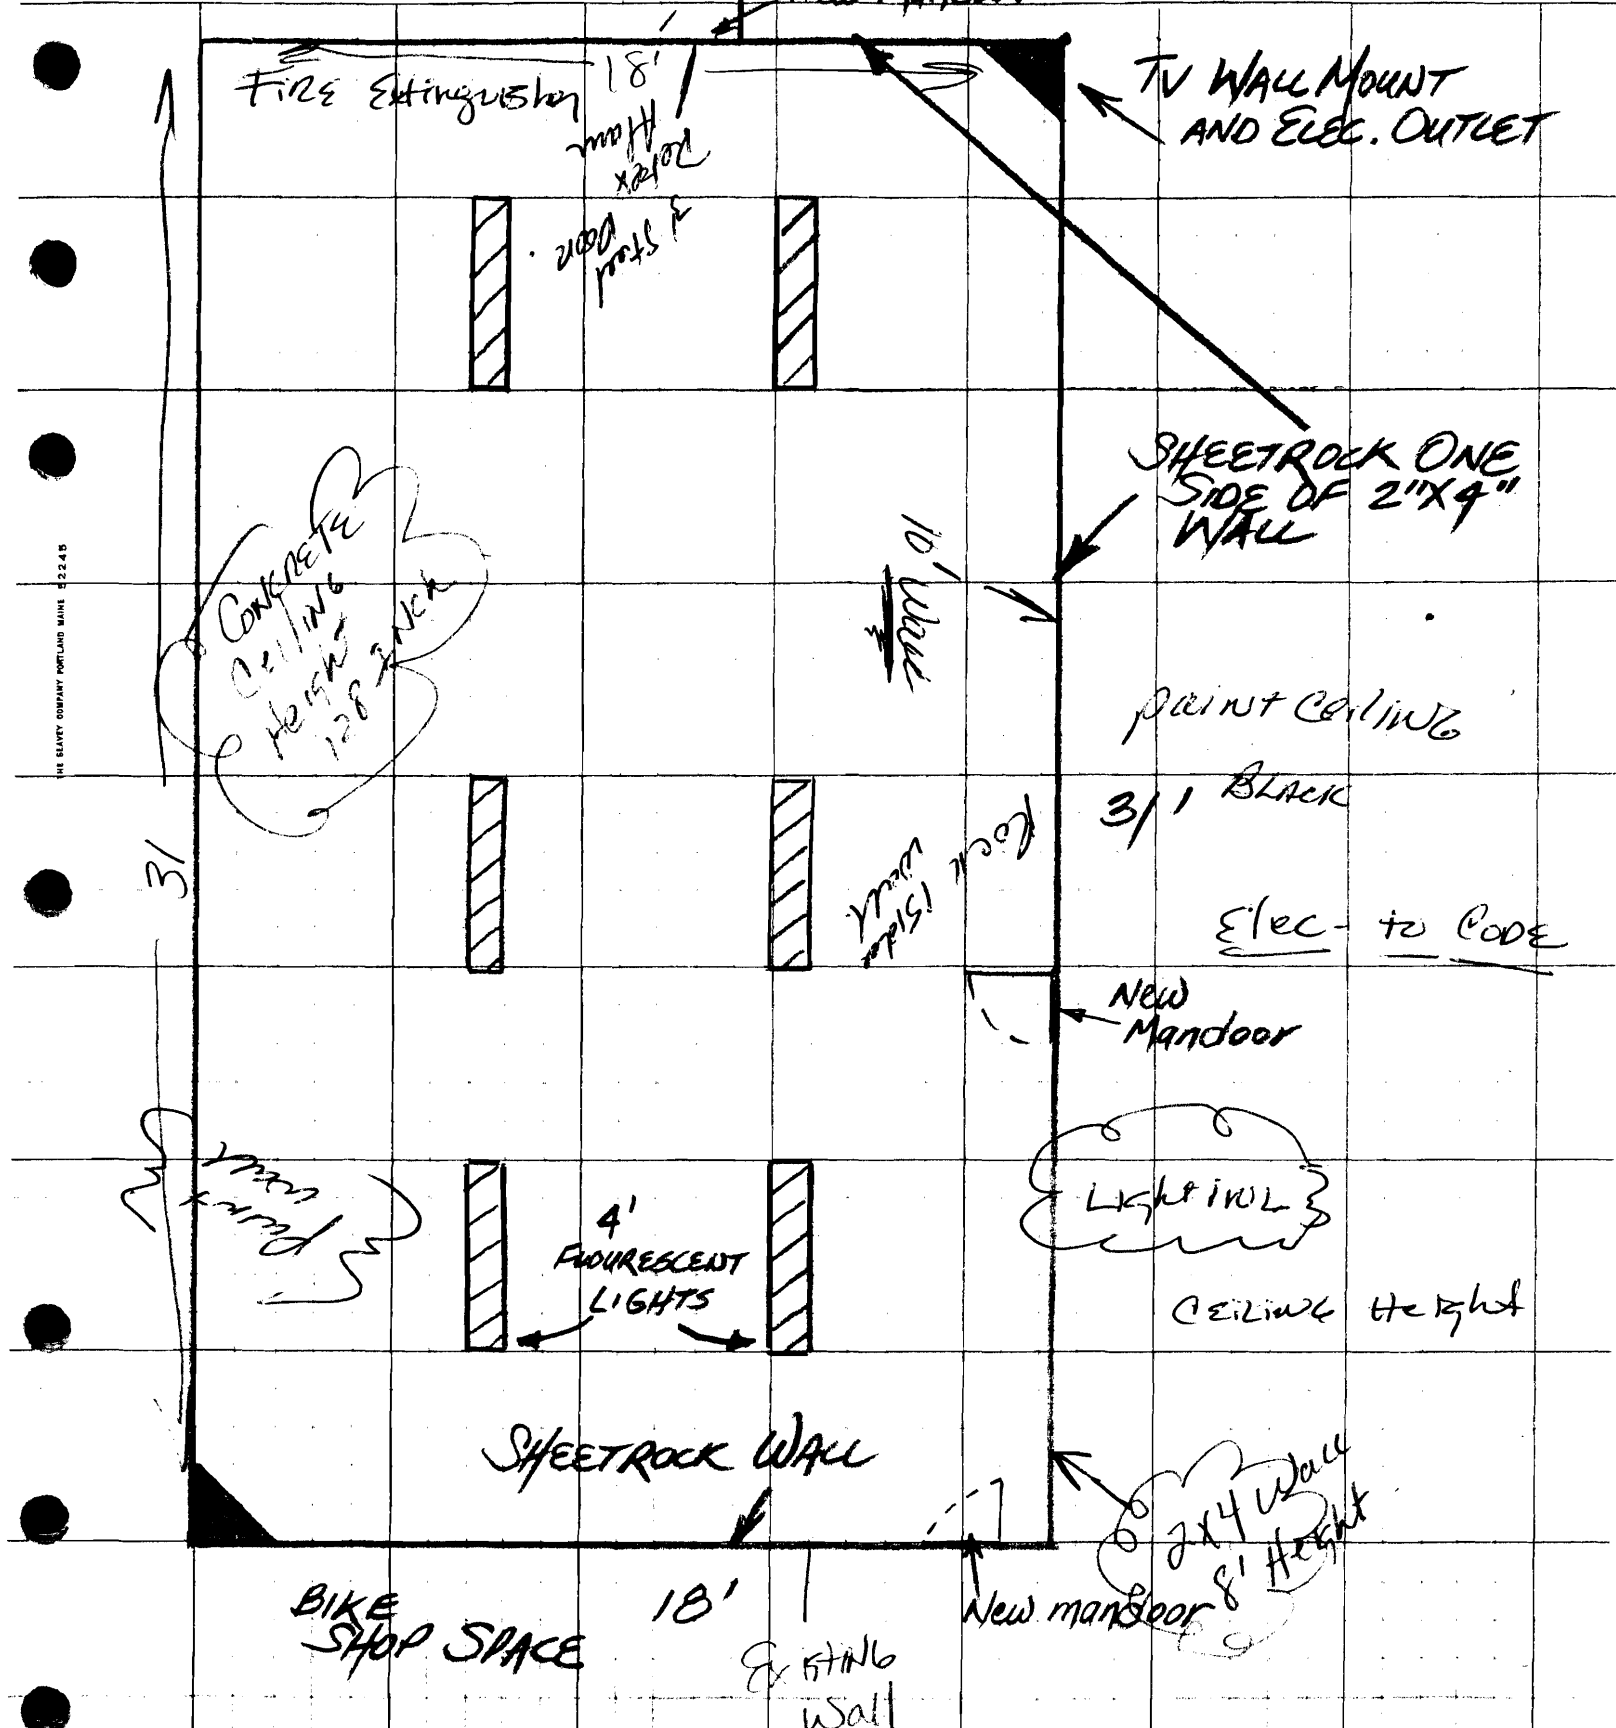 FIRE Extinguisher
18'
3' Steel
Door
TV WALL MOUNT
AND ELEC. OUTLET
SHEETROCK ONE
SIDE OF 2"X4"
WALL
CONCRETE
CeilING
Height
128 INch
10' Wall
paint CeiliNG
BLACK
31'
31
Rock
1Side
wall
Elec- to CODE
New
Mandoor
paint
wall
LightiNG
4'
FLOURESCENT
LIGHTS
CEiliNG Height
SHEETROCK WALL
2x4 Wall
8' Height
BIKE
SHOP SPACE
18'
New mandoor
ExistiNG
Wall
THE SEAVEY COMPANY PORTLAND MAINE 52245